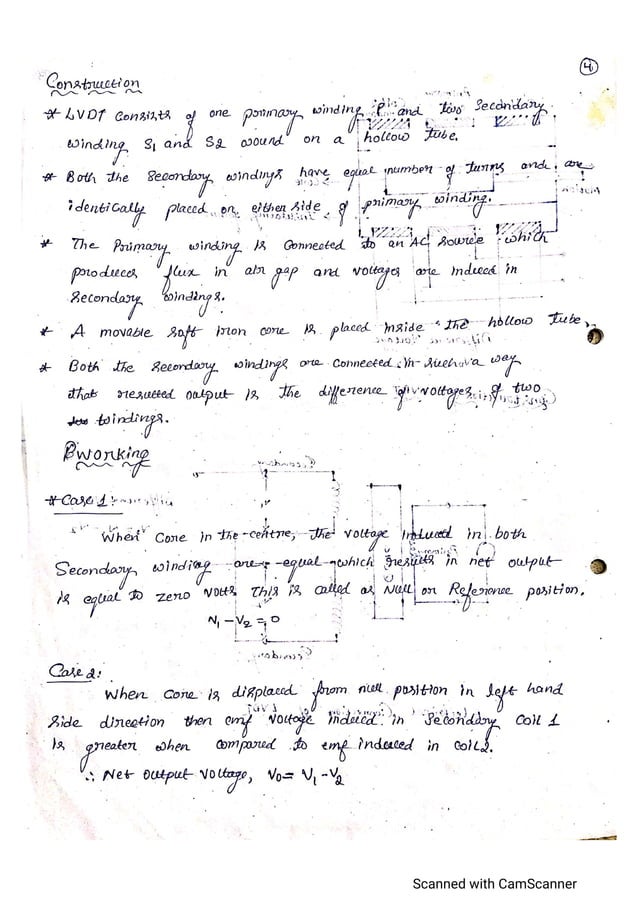 4
Construction
* LVDT consists of one primary winding P and two secondary
winding S1 and S2 wound on a hollow tube.
* Both the secondary windings have equal number of turns and are
identically placed on either side of primary winding.
* The Primary winding is connected to an AC source which
produces flux in air gap and voltages are induced in
secondary windings.
* A movable soft iron core is placed inside the hollow tube.
* Both the secondary windings are connected in such a way
that resulted output is the difference of voltages of two
windings.
Working
* Case 1:
When Core in the centre, the voltage induced in both
Secondary winding are equal which results in net output
is equal to zero volts This is called as Null or Reference position.
V1 - V2 = 0
Case 2:
When Core is displaced from null position in left hand
side direction then emf voltage induced in Secondary coil 1
is greater when compared to emf induced in coil 2.
∴ Net output voltage, V0 = V1 - V2
Scanned with CamScanner